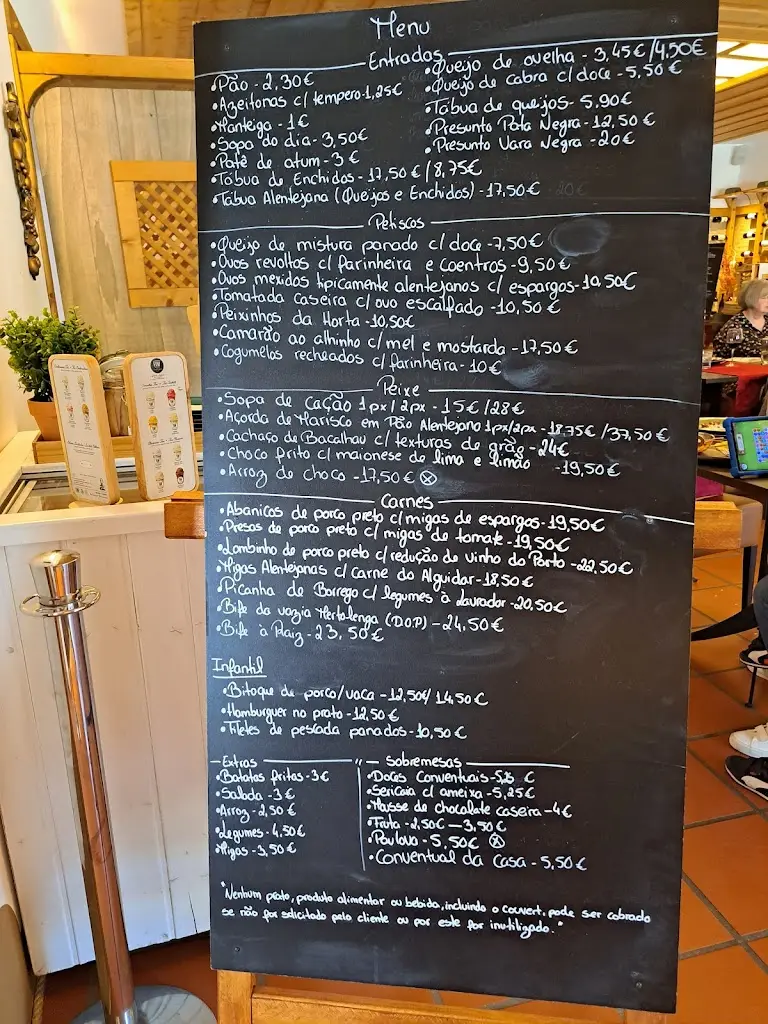 Menu
Entradas
•Pão - 2,30€
•Azeitonas c/ tempero - 1,25€
•Manteiga - 1€
•Sopa do dia - 3,50€
•Patê de atum - 3€
•Tábua de Enchidos - 17,50€ / 8,75€
•Tábua Alentejana (Queijos e Enchidos) - 17,50€
•Queijo de ovelha - 3,45€ / 4,50€
•Queijo de cabra c/ doce - 5,50€
•Tábua de queijos - 5,90€
•Presunto Pata Negra - 12,50€
•Presunto Vara Negra - 20€
Petiscos
•Queijo de mistura panado c/ doce - 7,50€
•Ovos revoltos c/ farinheira e Coentros - 9,50€
•Ovos mexidos tipicamente alentejanos c/ espargos - 10,50€
•Tomatada caseira c/ ovo escalfado - 10,50€
•Peixinhos da Horta - 10,50€
•Camarão ao alhinho c/ mel e mostarda - 17,50€
•Cogumelos recheados c/ farinheira - 10€
Peixe
•Sopa de Cação 1px / 2px - 15€ / 28€
•Açorda de Marisco em Pão Alentejano 1px/2px - 18,75€ / 37,50€
•Cachaço de Bacalhau c/ texturas de grão - 24€
•Choco frito c/ maionese de lima e limão - 19,50€
•Arroz de choco - 17,50€ ⊗
Carnes
•Abanicos de porco preto c/ migas de espargos - 19,50€
•Presas de porco preto c/ migas de tomate - 19,50€
•Lombinho de porco preto c/ redução de vinho do Porto - 22,50€
•Migas Alentejanas c/ Carne do Alguidar - 18,50€
•Picanha de Borrego c/ legumes à Lavrador - 20,50€
•Bife da vazia Mertolenga (D.O.P) - 24,50€
•Bife à Raiz - 23,50€
Infantil
•Bitoque de porco/vaca - 12,50€/ 14,50€
•Hamburguer no prato - 12,50€
•Filetes de pescada panados - 10,50€
Extras
•Batatas fritas - 3€
•Salada - 3€
•Arroz - 2,50€
•Legumes - 4,50€
•Migas - 3,50€
Sobremesas
•Doces Conventuais - 5,25 €
•Sericaia c/ ameixa - 5,25€
•Musse de chocolate caseira - 4€
•Fruta - 2,50€ — 3,50€
•Pavlova - 5,50€ ⊗
•Conventual da Casa - 5,50€
"Nenhum prato, produto alimentar ou bebida, incluindo o couvert, pode ser cobrado
se não for solicitado pelo cliente ou por este for inutilizado."